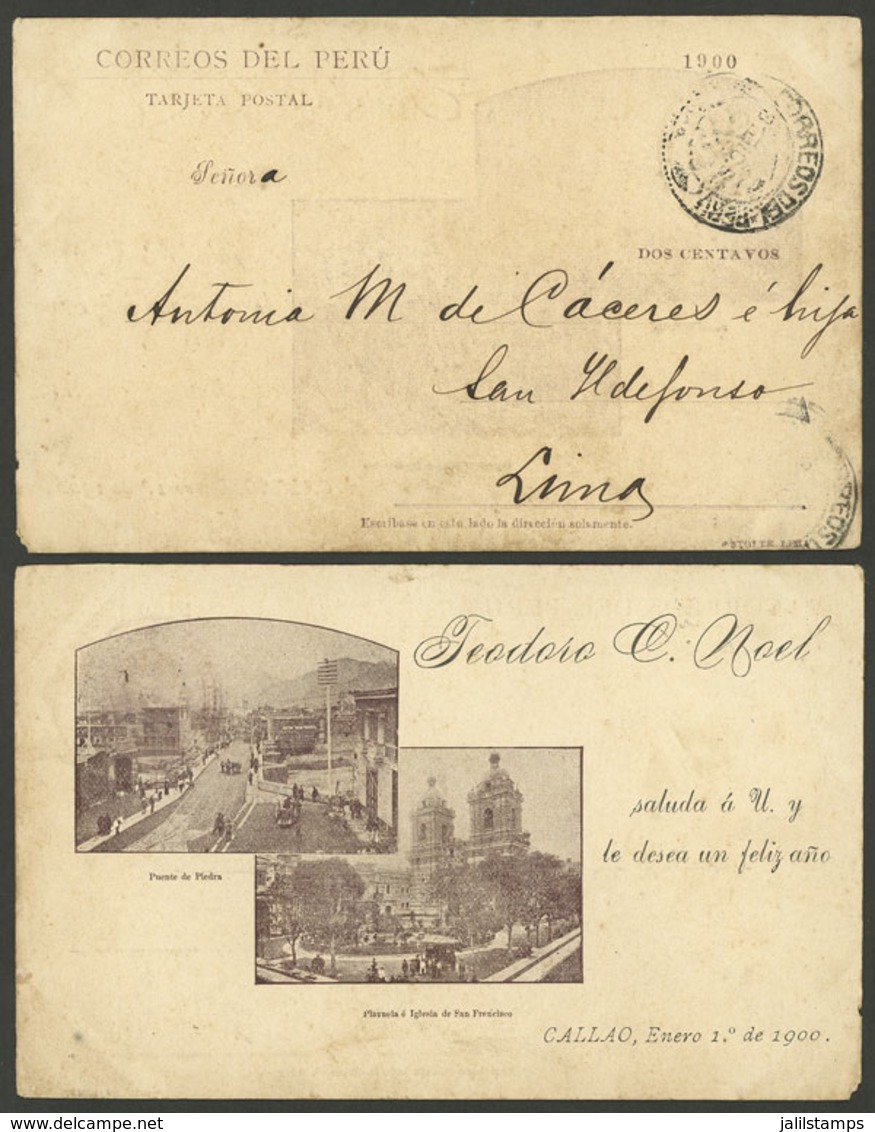 CORREOS DEL PERÚ
1900
TARJETA POSTAL
Señora
CORREOS DEL PERU
DOS CENTAVOS
Antonia M de Cáceres é hija
San Yldefonso
Lima
Escríbase en este lado la dirección solamente.
Teodoro C. Noel
saluda á U. y
le desea un feliz año
Puente de Piedra
Plazuela é Iglesia de San Francisco
CALLAO, Enero 1.º de 1900.
jalilstamps